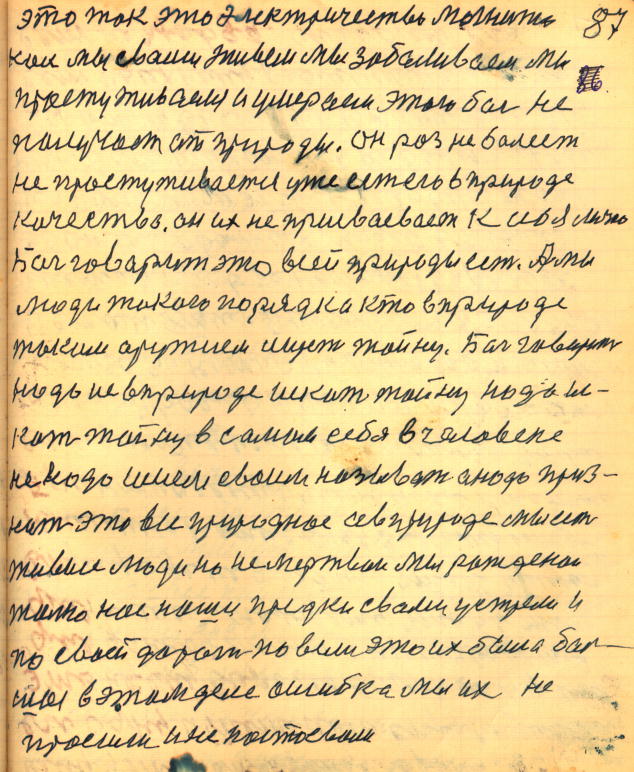 это ток это электричества магнита 87
как мы сваим живем мы забаливаем мы 86
простуживаемся и умераем этого бог не
получает от природы. он раз не балеет
не простуживается уже есть его в природе
качества. он их не присваевает к себя лично
Бог говарит это всей природы есть. А мы
люди такого порядка кто в природе
таким аружием ищет тайну. Бог говарит
надо не в природе искат тайну надо ис-
кат тайну в самом себя в человеке
не надо своим называт а надо приз-
нат это все природное в природе мы ест
живые люди но не мертваи мы рожденаи
только нас наши предки сваим устрели и
по своей дороги повели это их была бал-
шая в этом деле ошибка мы их не
просили и не